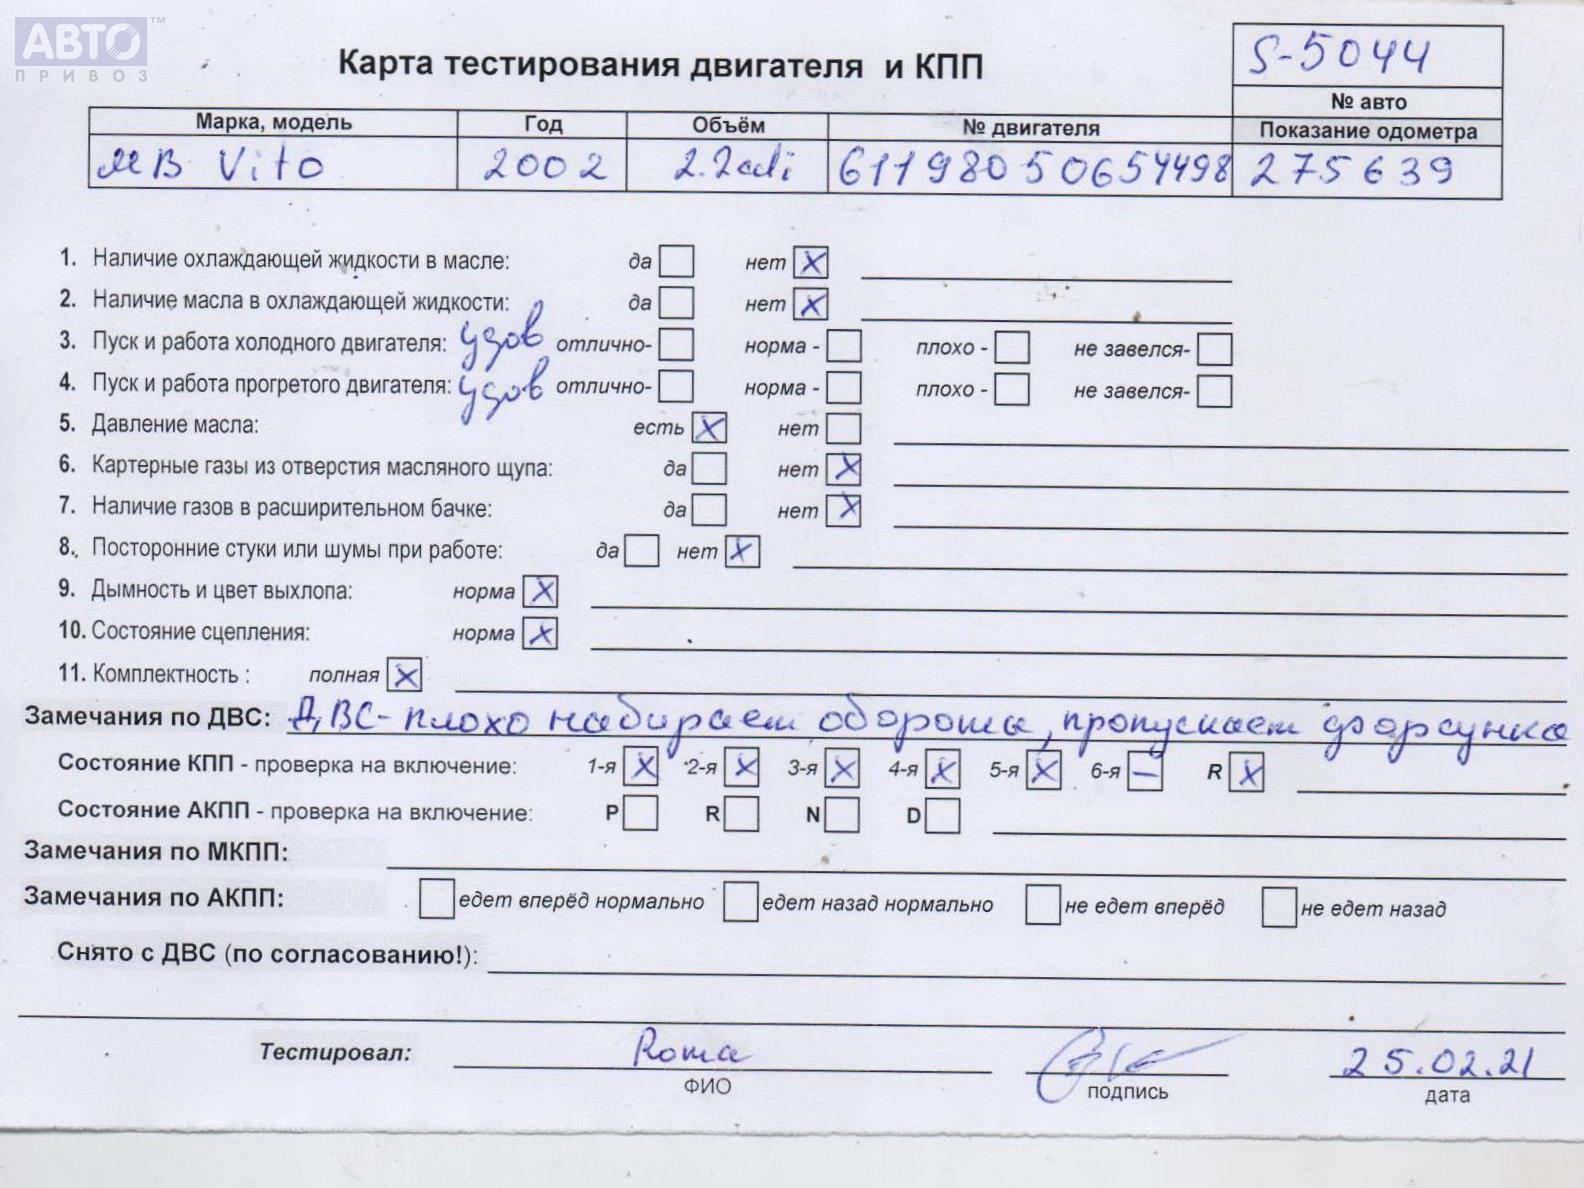 АВТО ™
ПРИВОЗ
Карта тестирования двигателя и КПП
S-5044
№ авто
Марка, модель Год Объём № двигателя Показание одометра
МВ Vito 2002 2.2cdi 61198050654498 275639
1. Наличие охлаждающей жидкости в масле: да нет X
2. Наличие масла в охлаждающей жидкости: да нет X
3. Пуск и работа холодного двигателя: удов отлично- норма - плохо - не завелся-
4. Пуск и работа прогретого двигателя: удов отлично- норма - плохо - не завелся-
5. Давление масла: есть X нет
6. Картерные газы из отверстия масляного щупа: да нет X
7. Наличие газов в расширительном бачке: да нет X
8. Посторонние стуки или шумы при работе: да нет X
9. Дымность и цвет выхлопа: норма X
10. Состояние сцепления: норма X
11. Комплектность : полная X
Замечания по ДВС: ДВС - плохо набирает обороты, пропускает форсунка
Состояние КПП - проверка на включение: 1-я X 2-я X 3-я X 4-я X 5-я X 6-я — R X
Состояние АКПП - проверка на включение: P R N D
Замечания по МКПП:
Замечания по АКПП: едет вперёд нормально едет назад нормально не едет вперёд не едет назад
Снято с ДВС (по согласованию!):
Тестировал: Рома 25.02.21
ФИО подпись дата